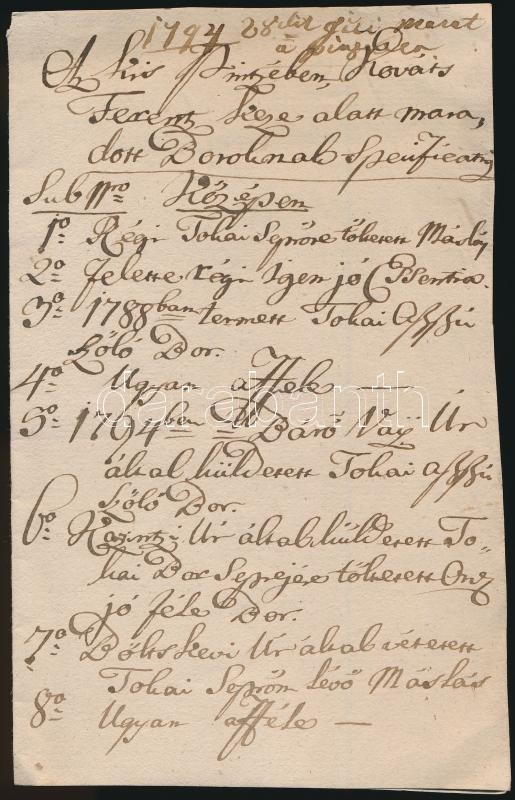 1794 28dik Juli maratt
a pinczében
A Kis Pintzében, Kováts
Ferentz keze alatt mara„
dott Boroknak Specificatioja
Sub Nro Középen
1o Régi Tokai Seprőre töltetett Máslás
2o Felette régi igen jó Essentia.
3o 1788ban termett Tokai Asszú
Szőlő Bor.
4o Ugyan afféle —
5o 1794ben Báró Vaÿ Úr
által küldetett Tokai asszú
Szőlő Bor.
6o Kazintzi Úr által küldetett To-
kai Bor Seprejére töltetett
jó féle Bor.
7o Böltskevi Úr által vétetett
Tokai Seprőn lévő Máslás
8o Ugyan afféle —
darabanth